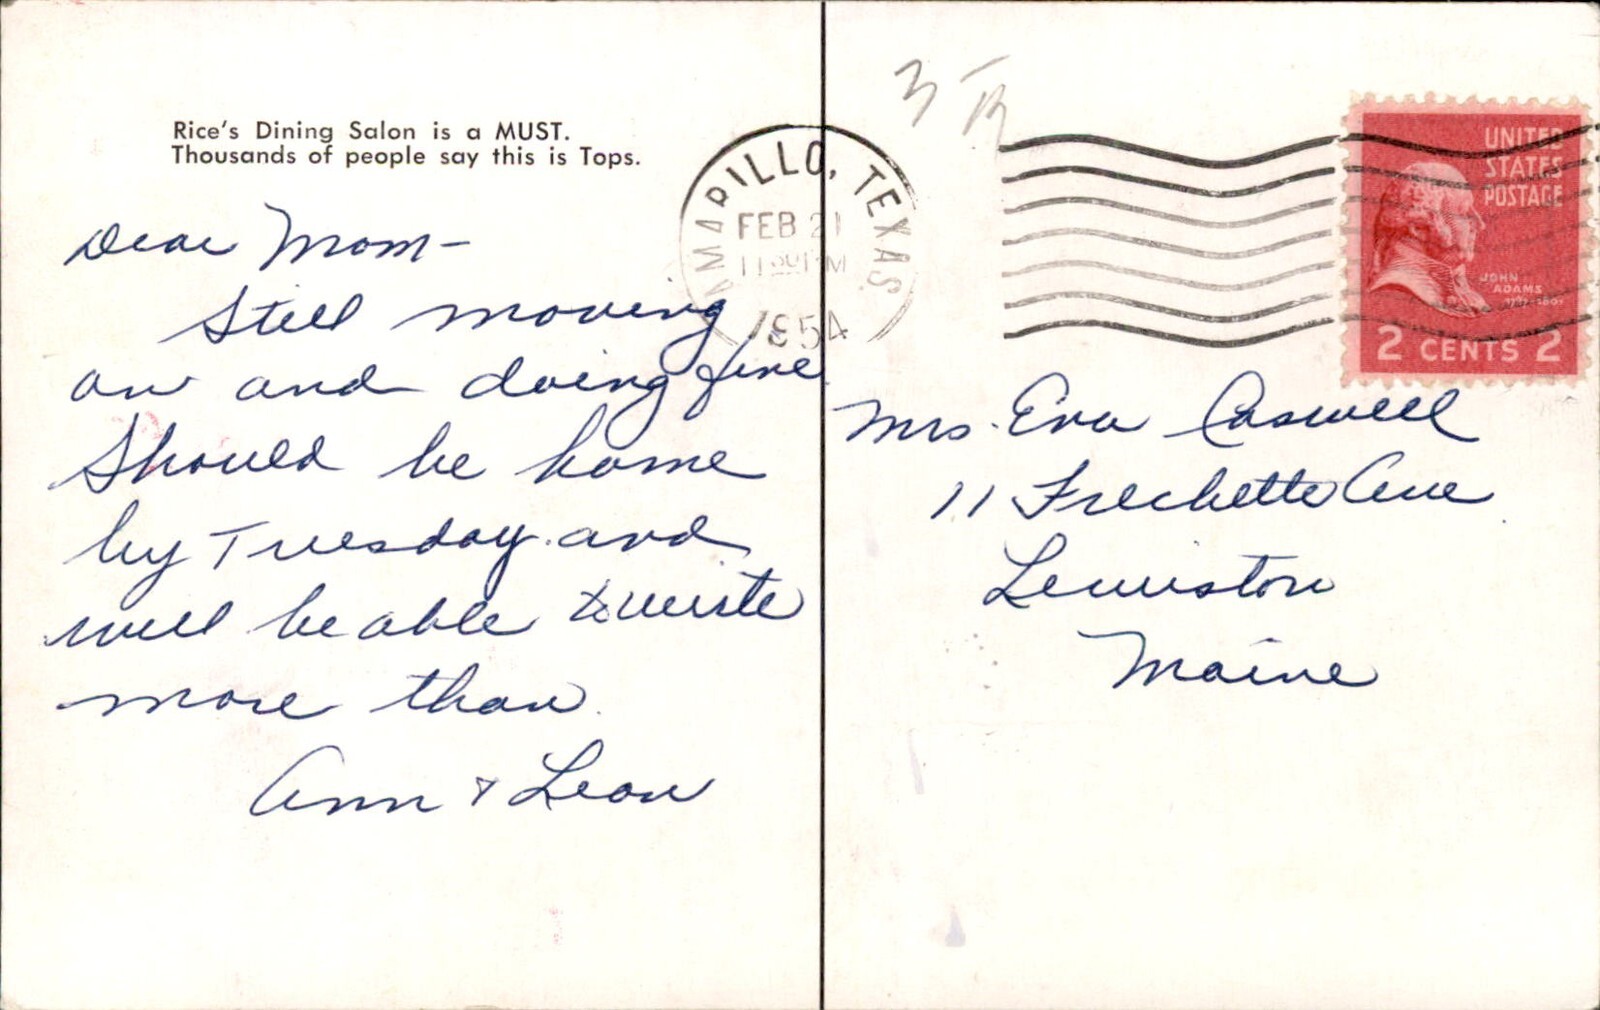 Rice's Dining Salon is a MUST.
Thousands of people say this is Tops.
Dear Mom -
Still moving
on and doing fine
Should be home
by Tuesday and
will be able to write
more then.
Ann & Leon
AMARILLO, TEXAS
FEB 21
1954
UNITED
STATES
POSTAGE
JOHN
ADAMS
2 CENTS 2
Mrs. Eva Caswell
11 Frechette Ave
Lewiston
Maine